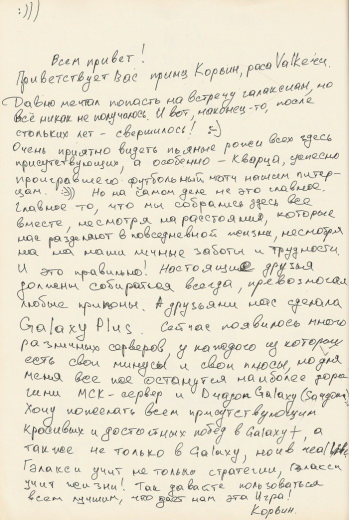 :)))
Всем привет!
Приветствует Вас принц Корвин, раса Valkeru.
Давно мечтал попасть на встречу галаксиан, но
всё никак не получалось. И вот, наконец-то, после
стольких лет – свершилось! :-)
Очень приятно видеть пьяные рожи всех здесь
присутствующих, а особенно – Кварца, успешно
проигравшего футбольный матч нашим питер-
цам. :))) Но на самом деле не это главное.
Главное то, что мы собрались здесь все
вместе, несмотря на расстояния, которые
нас разделяют в повседневной жизни, несмотря
на наши личные заботы и трудности.
И это правильно! Настоящие друзья
должны собираться всегда, превозмогая
любые препоны. А друзьями нас сделала
Galaxy Plus. Сейчас появилось много
различных серверов, у каждого из которых
есть свои минусы и свои плюсы, но для
меня все же останутся наиболее доро-
гими МСК-сервер и Dragon Galaxy
Хочу пожелать всем присутствующим
красивых и достойных побед в Galaxy+, а
также не только в Galaxy, но и в real life.
Гэлакси учит не только стратегии, Гэлакси
учит жизни! Так давайте пользоваться
всем лучшим, что даёт нам эта Игра!
Корвин.